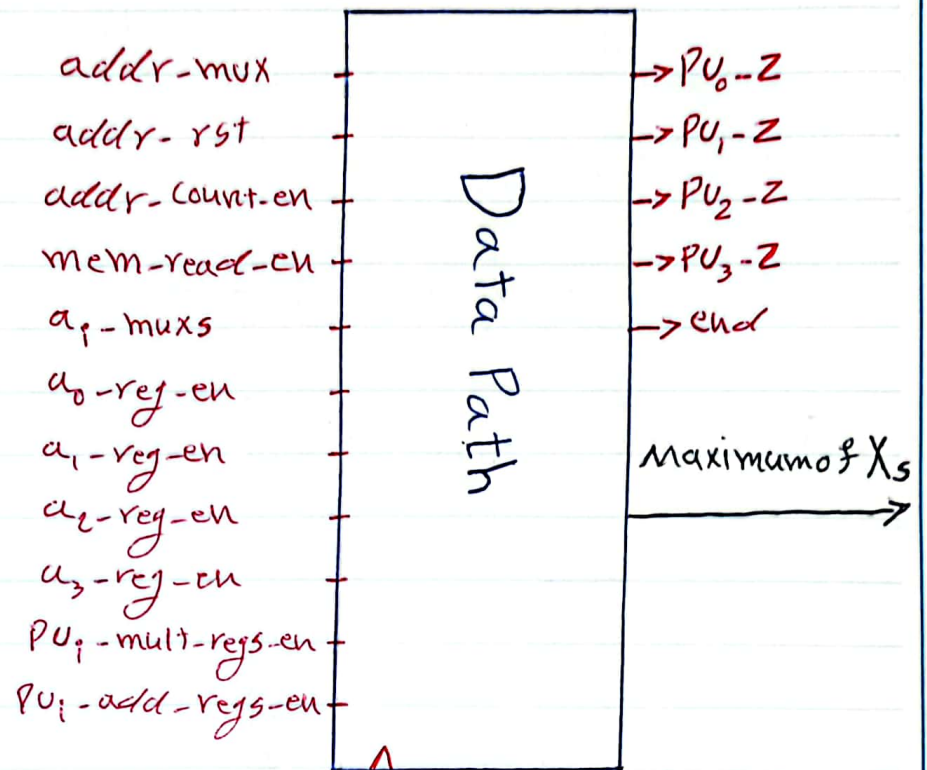 addr-mux
addr-rst
addr-count-en
mem-read-en
aᵢ-muxs
a₀-reg-en
a₁-reg-en
a₂-reg-en
a₃-reg-en
PUᵢ-mult-regs-en
PUᵢ-add-regs-en
Data Path
PU₀-Z
PU₁-Z
PU₂-Z
PU₃-Z
end
Maximum of Xs